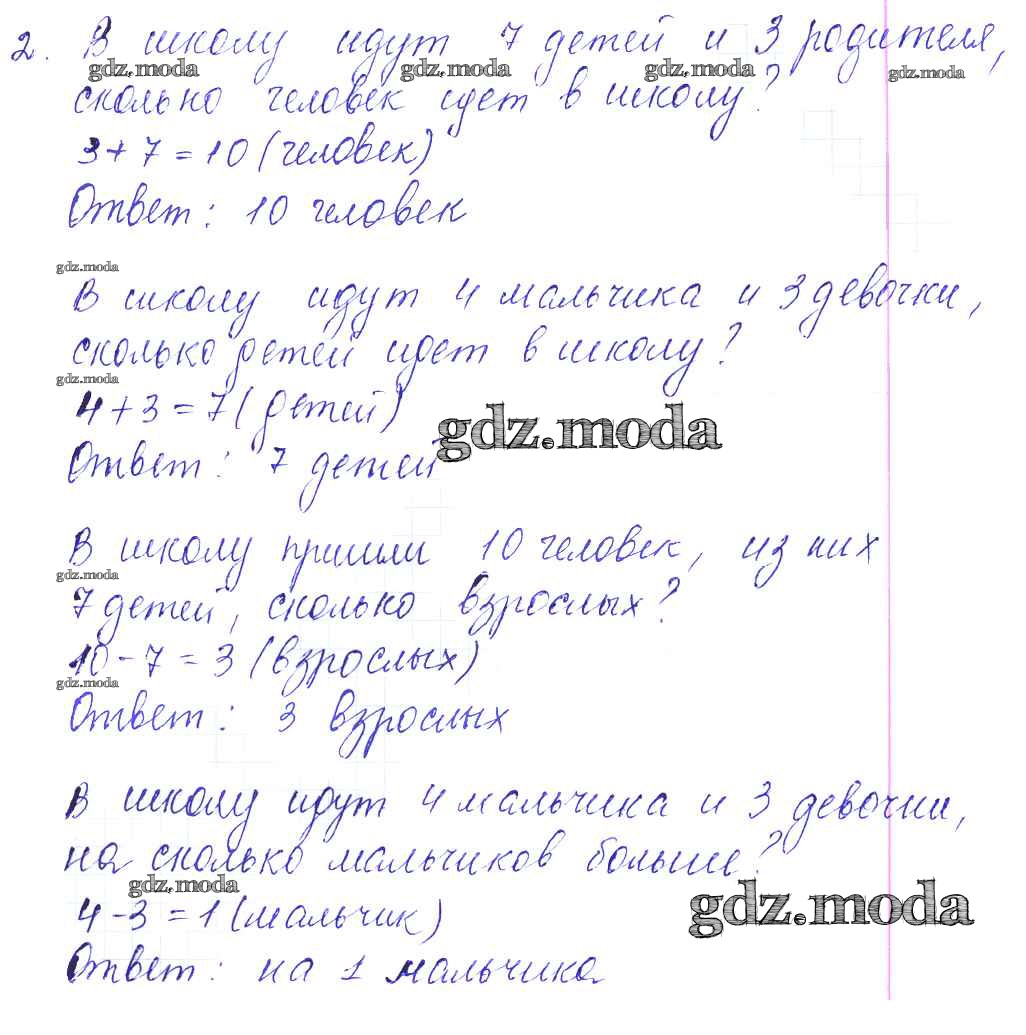 2. В школу идут 7 детей и 3 родителя,
gdz.moda gdz.moda gdz.moda gdz.moda
сколько человек идет в школу?
3 + 7 = 10 (человек)
Ответ: 10 человек
gdz.moda
В школу идут 4 мальчика и 3 девочки,
сколько детей идет в школу?
gdz.moda
4 + 3 = 7 (детей)
gdz.moda
Ответ: 7 детей
В школу пришли 10 человек, из них
gdz.moda
7 детей, сколько взрослых?
10 - 7 = 3 (взрослых)
gdz.moda
Ответ: 3 взрослых
В школу идут 4 мальчика и 3 девочки,
на сколько мальчиков больше?
gdz.moda
4 - 3 = 1 (мальчик)
gdz.moda
Ответ: на 1 мальчика